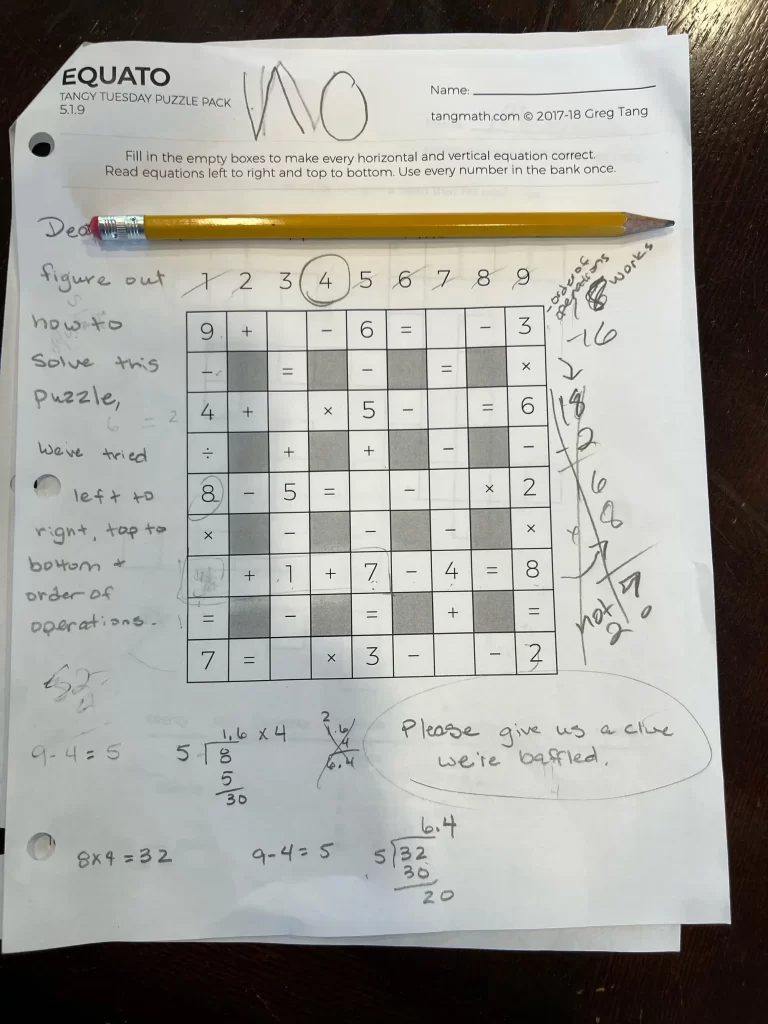 EQUATO
TANGY TUESDAY PUZZLE PACK
5.1.9
NO
Name:
tangmath.com © 2017-18 Greg Tang
Fill in the empty boxes to make every horizontal and vertical equation correct.
Read equations left to right and top to bottom. Use every number in the bank once.
figure out
how to
Solve this
puzzle,
We've tried
left to
right, top to
bottom +
order of
operations.
1 2 3 4 5 6 7 8 9
9 + - 6 = - 3
- = - = ×
4 + × 5 - = 6
÷ + + - -
8 - 5 = - × 2
× - - - ×
+ 1 + 7 - 4 = 8
= - = + =
7 = × 3 - - 2
-order of
operations
8 works
-16
18
2
6
8
7
not
2
9-4=5
1.6 x 4
5 8
5
30
2
1.6
4
6.4
Please give us a clue
we're baffled.
8x4=32
9-4=5
6.4
5 32
30
20